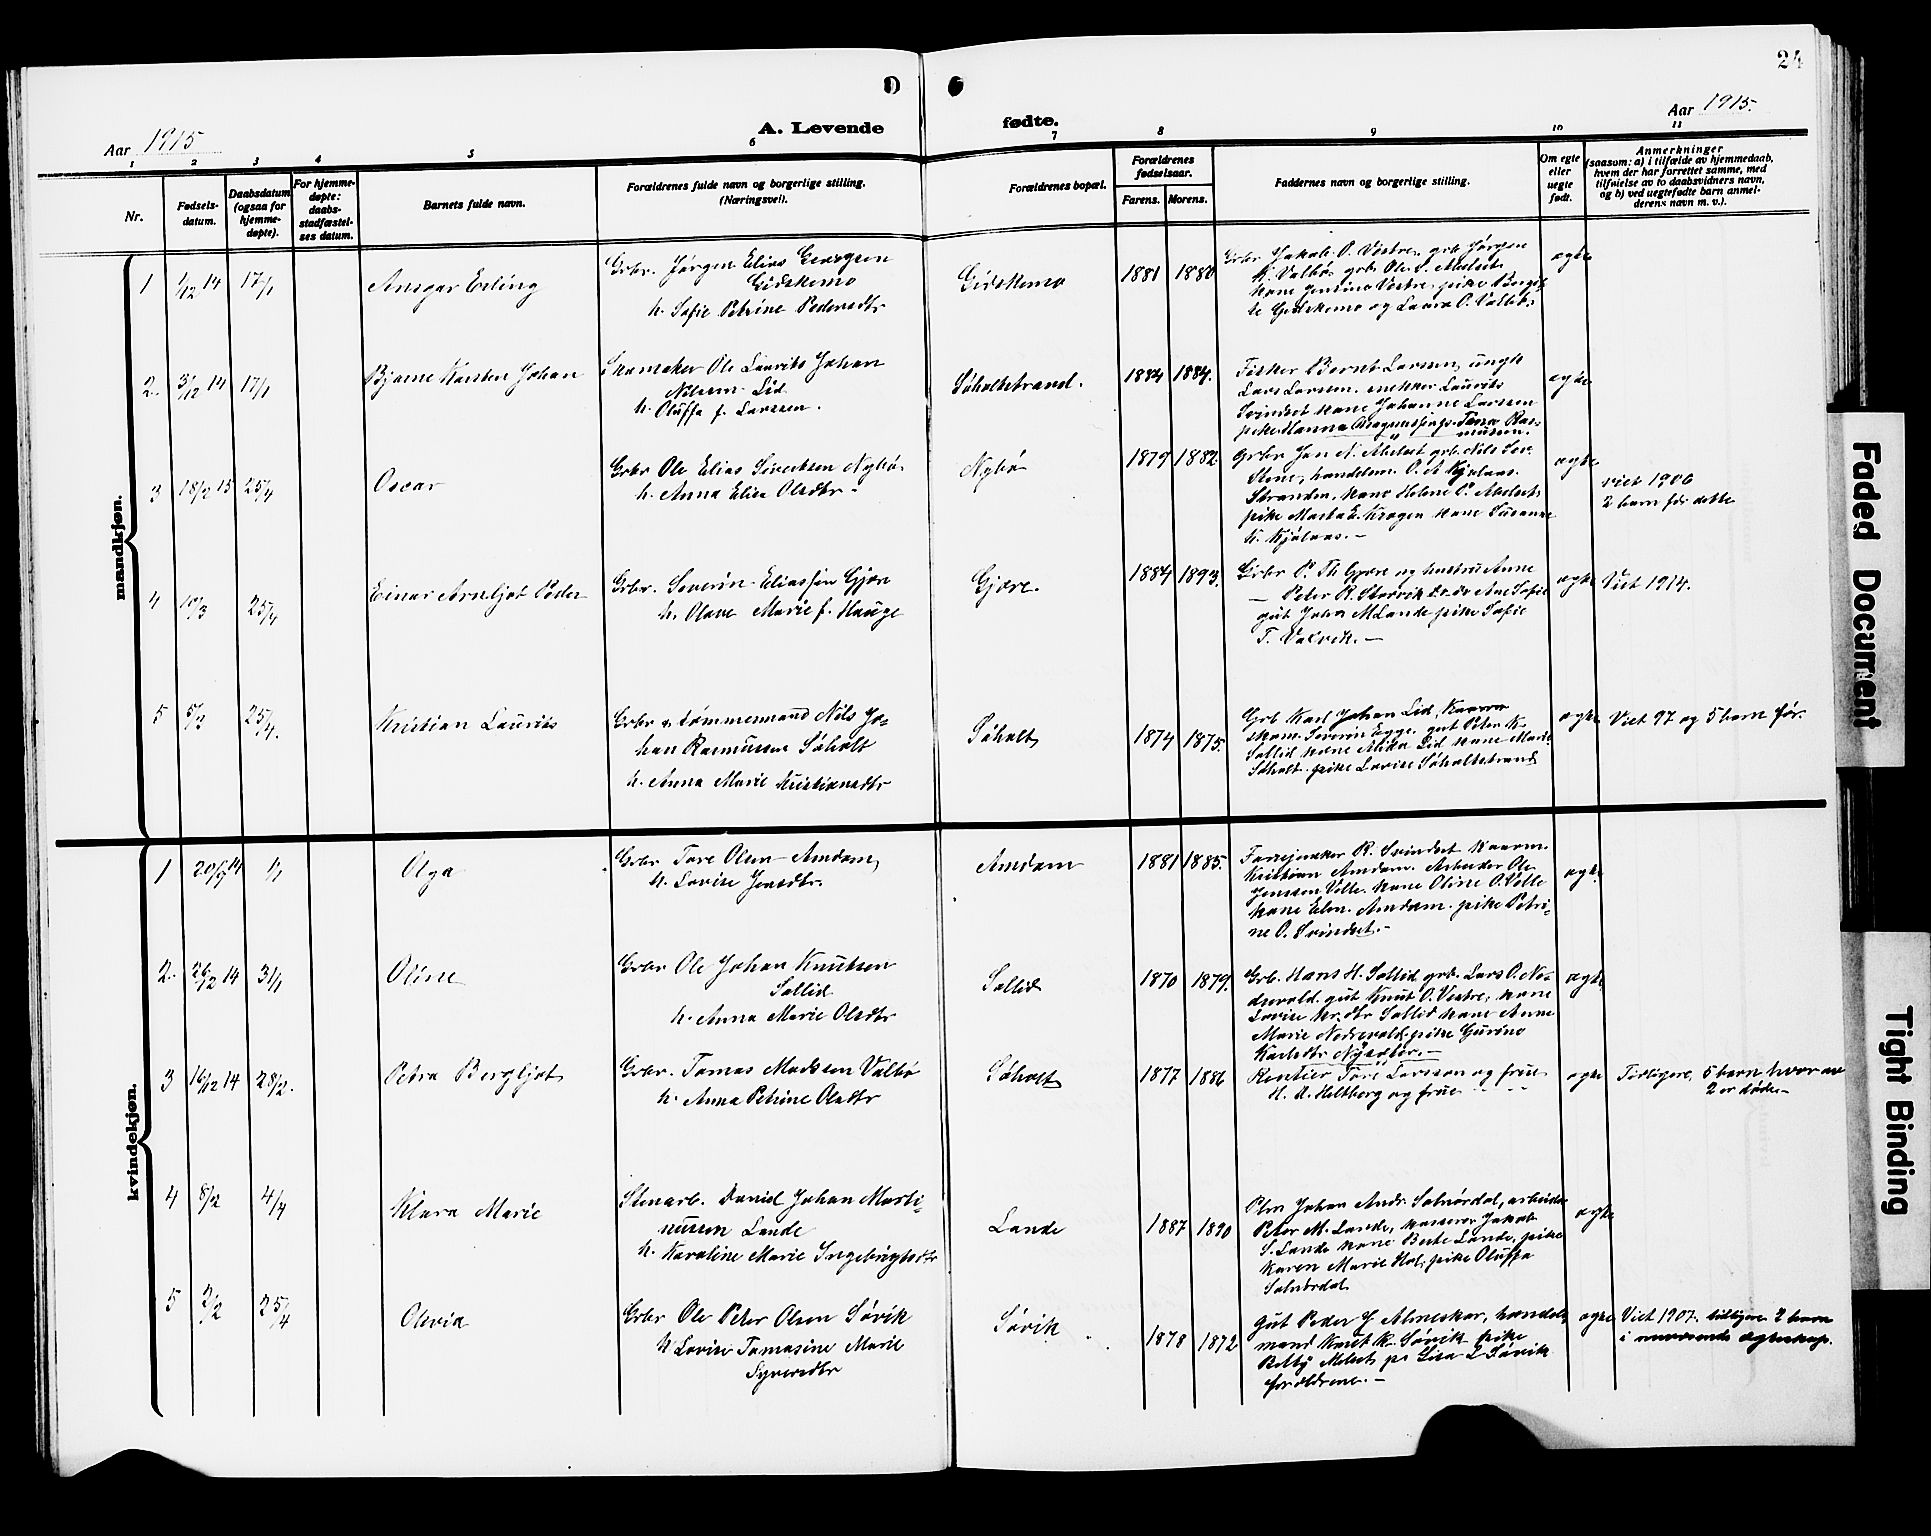 24
Aar 1915
A. Levende fødte.
Aar 1915.
1 2 3 4 5 6 7 8 9 10 11
Nr.
Fødsels-
datum.
Daabsdatum
(ogsaa for
hjemme-
døpte).
For hjemme-
døpte:
daabs-
stadfæstel-
ses datum.
Barnets fulde navn.
Forældrenes fulde navn og borgerlige stilling.
(Næringsvei).
Forældrenes bopæl.
Forældrenes
fødselsaar.
Farens. Morens.
Faddernes navn og borgerlig stilling.
Om egte
eller
uegte
født.
Anmerkninger
(saasom: a) i tilfælde av hjemmedaab,
hvem der har forrettet samme, med
tilføielse av to daabsvidners navn,
og b) ved uegtefødte barn anmel-
derens navn m. v.).
mandkjøn.
1 1/12 14 17/1 Ansgar Erling
Grbr. Jørgen Elias Georgsen
Gidskemo
h. Sofie Petrine Pedersdtr
Gidskemo 1881 1880
Grbr. Jakob O. Vestre, grb. Jørgen
K. Valbø grb. Ole
kone Jensine Vestre, pike Bergit-
te Gidskemo og Laura O. Valbø.
ægte
2. 3/12 14 17/1 Bjarne Karsten Johan
Skomaker Ole Laurits Johan
Nilsen Lid
h. Oluffa f. Larssen.
Søholtstrand. 1884 1884.
Fisker Bernt Larsen, ungk
Lars Larsen. snekker Laurits
Svindset kone Johanne Larssen
pike Hanna
ægte
3 18/2 15 25/4 Oscar
Grbr Ole Elias Sivertsen Nybø
h. Anna Elise Olsdtr.
Nybø 1879 1882
Grbr Jan N. Abelset grb. Nils
handelsm. O. A. Kjølaas.
Stranden, kone Helene P. Abelset,
pike Marta E. Krogen kone Susanne
K. Kjølaas. —
ægte
viet 1906
2 barn før dette
4 10/3 25/4 Einar Arnljot Peder
Grbr. Severin Eliassen Gjære
h. Olave Marie f. Hauge
Gjære. 1884 1893.
Grbr P. Th. Gjære og hustru Anne
— Peter R. Storvik Ane Sofie
gut Johan M Lande pike Sofie
T. Valvik. —
ægte Viet 1914.
5 25/4. Kristian Laurits
Grbr & tømmermand Nils Jo-
han Rasmussen Søholt
h. Anna Marie Kristiansdtr
Søholt 1874 1875.
Grb Karl Johan Lid,
Severin Egge, gut Peter K.
Sollid kone Lid kone Marie
Søholt pike Lovise Søholtstrand
ægte Viet 97 og 5 barn før.
kvindekjøn.
1 14 1/1 Olga
Grbr Tore Olsen Amdam,
h. Lovise Jensdtr.
Amdam 1881 1885.
R. Svindset kaarm.
Kristian Amdam. Arbeider Ole
Jenssen Volle. kone Oline O. Volle
kone Amdam. pike Petri-
ne O. Svindset. —
ægte
2. 26/12 14 3/1 Oline
Grbr Ole Johan Knutsen
Sollid
h. Anna Marie Olsdtr
Sollid 1870 1879.
Grb. Hans H. Sollid grb. Lars O. Ne-
drevold. gut Knut O. Vestre, kone
Lovise Sollid kone Anne
Marie Nedrevold, pike Gurine
Karlsdtr Nysæter. —
ægte
3 16/12 14 28/2. Petra Bergljot
Grbr. Tomas Madssen Valbø
h. Anna Petrine Olsdtr
Søholt 1877 1886
Rentier Tore Larsson og frue
H. A. Heltberg og frue
ægte Tidligere, 5 barn hvorav
2 er døde —
4 8/2 4/4 Klara Marie
Stenarb. Daniel Johan Marti-
nussen Lande
h. Karoline Marie Ingebrigtsdtr
Lande 1887 1890
Johan Andr. Solnørdal, arbeider
Peter M. Lande, kasserer Jakob
S. Lande kone Berte Lande, pike
Karen Marie Hol, pike Oluffa
Solnørdal
ægte
5 2/2 25/4 Olevia
Grbr Ole Peter Olsen Søvik
h Lovise Tomasine Marie
Syversdtr
Søvik 1878 1872
gut Peder J Almeskar, handels
mand Knut K. Søvik pike
Betty Melset, pi Lisa L Søvik
forældrene. —
ægte Viet 1907. tidligere 2 barn
i nuværende ægteskap.
Faded Document
Tight Binding